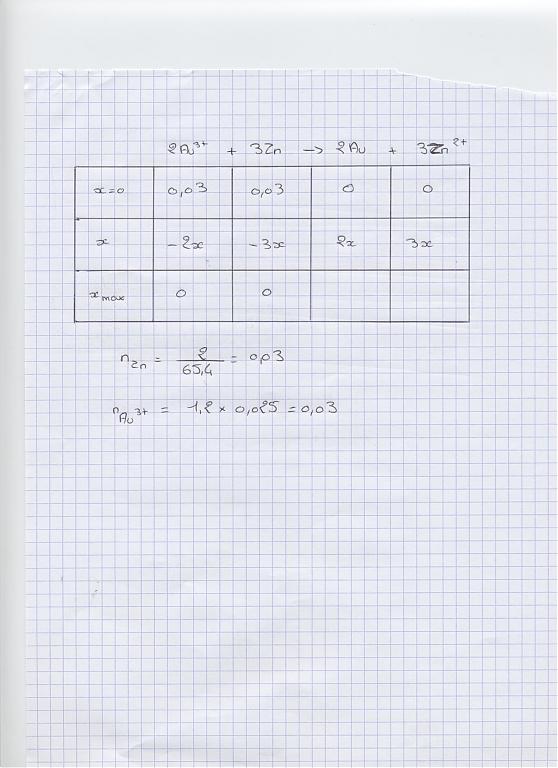 2Au³⁺ + 3Zn -> 2Au + 3Zn²⁺
x=0 0,03 0,03 0 0
x -2x -3x 2x 3x
x max 0 0
n Zn = 2/65,4 = 0,03
n Au³⁺ = 1,2 × 0,025 = 0,03